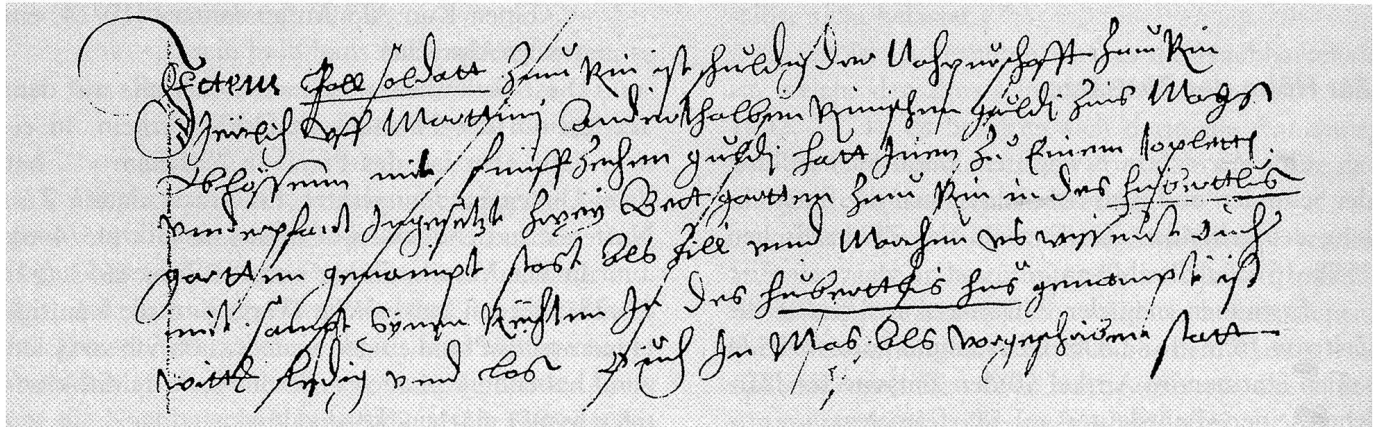 Ittem Poll soldatt zuu Rin ist schuldig der Nachpurschafft zuu Rin
Jerlich uff Marttinj anderthalben Rinischen guldi zins Mags
ablössenn mit fünffzechen guldi hatt Inen zu Einem
underpfant Ingesetzt zwen Bett gartten zuu Rin in des huberttlus
gartten genampt stost als fill unnd Marchen uswissent Auch
mit sampt synen Rechten In des huberttlis hus genampt ist
witt ledig unnd los Auch In Mas als vorgeschriben statt